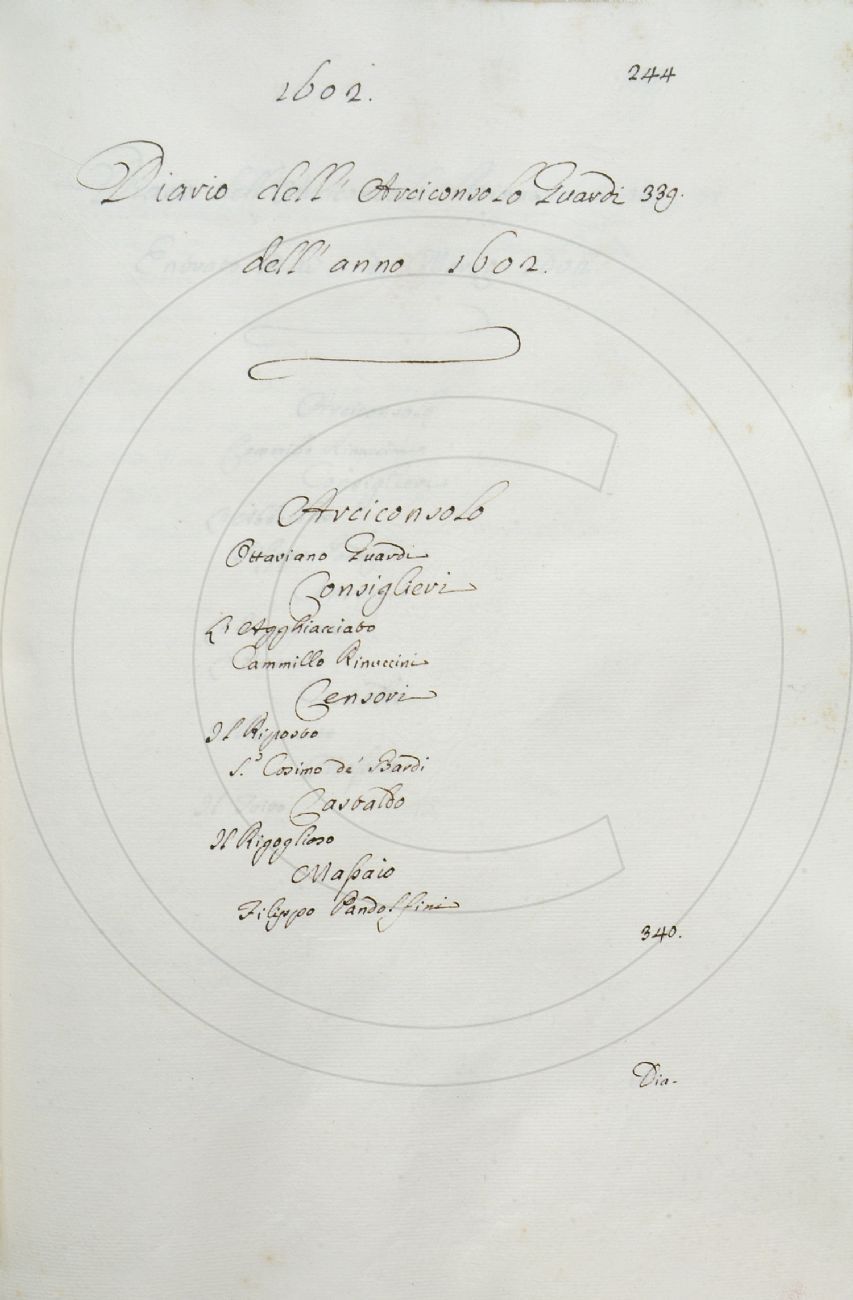 1602.
244
Diario dell' Arciconsolo Guardi 339.
dell' anno 1602.
Arciconsolo
Ottaviano Guardi
Consiglieri
L' Agghiacciato
Cammillo Rinuccini
Censori
Il Riposto
S.ʳ Cosimo de' Bardi
Castaldo
Il Rigoglioso
Massaio
Filippo Pandolfini
340.
Dia-